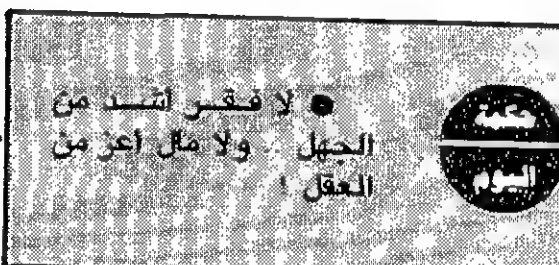 حكمة
اليوم
● لا فقر أشد من
الجهل .. ولا مال أعز من
العقل !